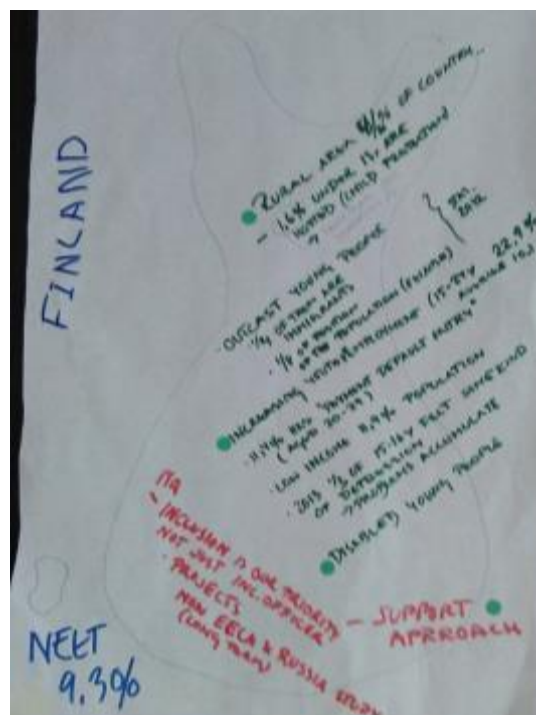 FINLAND
RURAL AREA % OF COUNTRY...
- 1,6% UNDER 15, ARE
HOSTED (CHILD PROTECTION
- OUTCAST YOUNG PEOPLE
1/4 OF THEM ARE
IMMIGRANTS
OF THE POPULATION
2012
INCREASING YOUTH UNEMPLOYMENT (15-24y 22,9%
"PAYMENT DEFAULT ENTRY"
(AGED 20-29)
LOW INCOME POPULATION
2013 OF 15-16y FELT SOME KIND
OF DEPRESSION
→ PROBLEMS ACCUMULATE
DISABLED YOUNG PEOPLE
- INCLUSION IS OUR PRIORITY
NOT JUST INC. OFFICER
- PROJECTS
EECA & RUSSIA
(LONG TERM)
- SUPPORT
APRROACH
NEET
9.3%